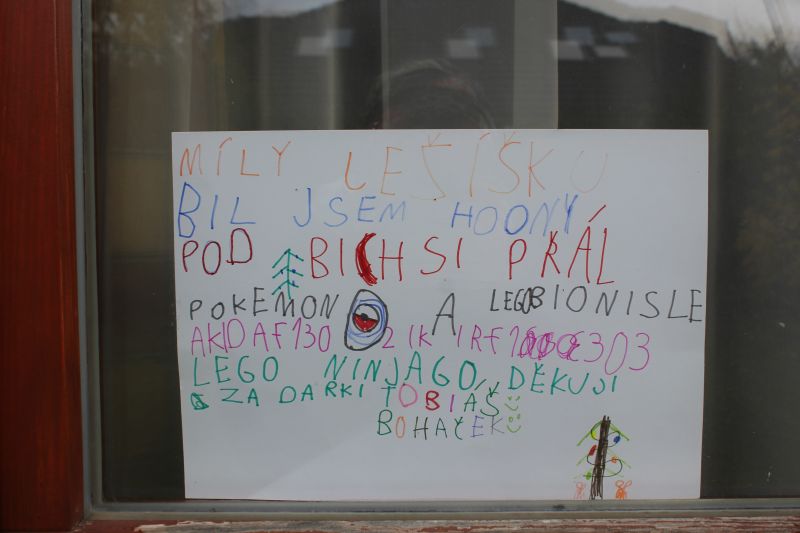 MÍLY LEŠÍŠKU
BIL JSEM HODNY
POD BICH SI PŘÁL
POKEMON A LEGO BIONISLE
AKIDAF1302 IK IRF 303
LEGO NINJAGO, DĚKUJI
ZA DARKI TOBIÁŠ
BOHAČEK